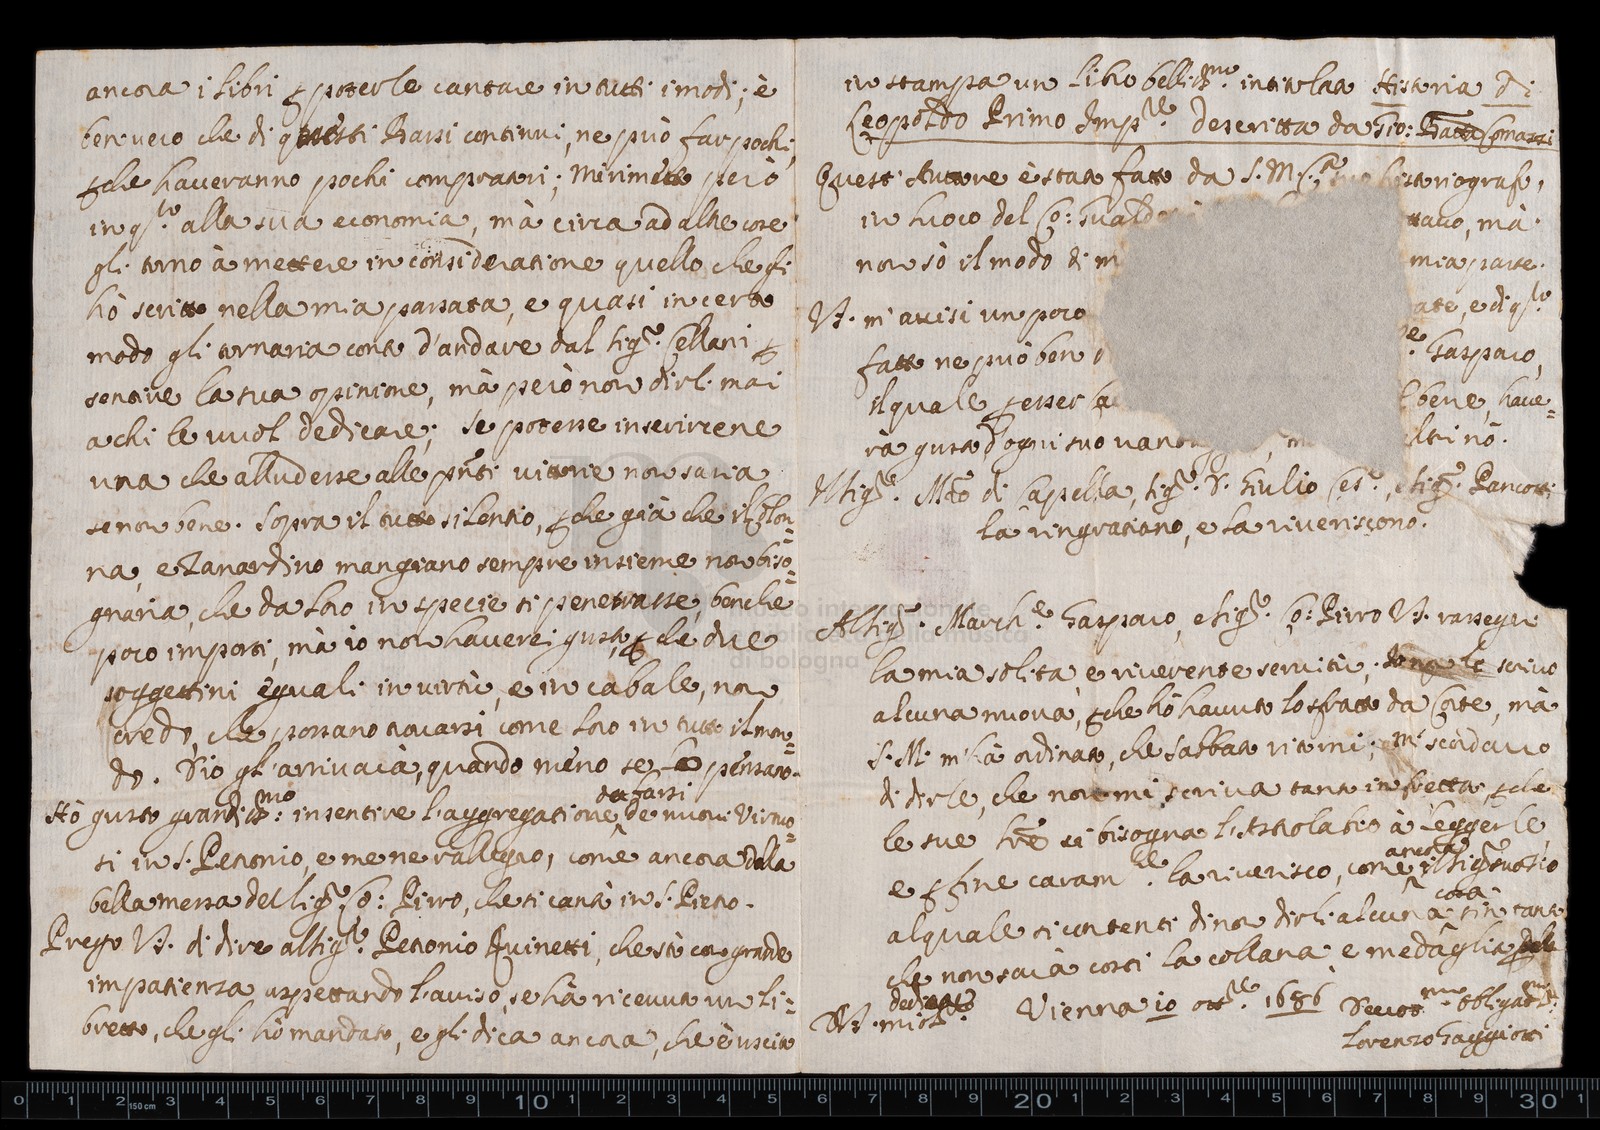 ancora i libri p poterle cantare in tutti i modi; è
ben vero che di questi Bassi continui, ne può far pochi,
p che haveranno pochi compratori; Mi rimetto però
in q.to alla sua economia, mà circa ad altre cose
gli torno à mettere in consideratione quello che gli
hò scritto nella mia passata, e quasi in certo
modo gli tornaria conto d'andare dal Sig.re Cellani p
sentire la sua opinione, mà però non dirli mai
a chi le vuol dedicare; se potesse inserircene
una che alludesse alle pnti vittorie non saria
se non bene. Sopra il tutto silentio, p che già che il Colon=
na, e Zanardino mangiano sempre insieme non biso=
gnaria, che da loro in specie si penetrasse, benche
poco importi, mà io non haverei gusto, p che due
soggettini eguali in virtù, e in cabale, non
credo, che possano trovarsi come loro in tutto il mon=
do. Dio gl'arrivarà, quando meno se lo pensaro.
Hò gusto grandiss.mo: in sentire l'aggregatione da farsi de nuovi Virtuo=
si in S. Petronio, e me ne rallegro, come ancora della
bella messa del Sig.re Co: Pirro, che si cantò in S. Pietro.
Prego V.S. di dire al Sig.re Petronio Guinetti, che stò con grande
impatienza aspettando l'aviso, se hà ricevuto un li=
bretto, che gli hò mandato, e gli dica ancora, che è uscito
in stampa un libro belliss.mo intitolato Historia di
Leopoldo Primo Imp.re descritta da Gio: Batta Comazzi
Quest'Auttore è stato fatto da S. M. C. suo historiografo,
in luoco del Co: Gualdo ttavo, mà
non sò il modo di m mia parte.
V.S. m'avisi un poco ate, e di q.to
fatto ne può ben Gasparo,
il quale p esser bene, have=
rà gusto d'ogni suo van ltri nò.
Il Sig.re M.ro di Capella, Sig.re D. Giulio Ces.e, e Sig.re Pancotti
la ringratiano, e la riveriscono.
Al Sig.re March.e Gasparo, e Sig.re Co: Pirro V.S. rassegni
la mia solita, e riverente servitù; non gli scrivo
alcuna nuova, p che hò havuto lo sfratto da Corte, mà
S. M. m'hà ordinato, che Sabbato ritorni; mi scordavo
di dirle, che non mi scriva tanto in fretta, p che
le sue lre ci bisogna l'Astrolabio à leggerle,
e p fine caram.te la riverisco, come ancora il Sig.re suo zio
al quale si contenti di non dirli alcuna cosa sin tanto
che non sarà costì la collana e medaglia
V.S. mio Sig.re Vienna 10 ott.re 1686 Devot.mo Obligat.mo
Lorenzo Gaggiotti
museo internazionale
e biblioteca della musica
di bologna
0 1 2 150 cm 3 4 5 6 7 8 9 10 1 2 3 4 5 6 7 8 9 20 1 2 3 4 5 6 7 8 9 30 1